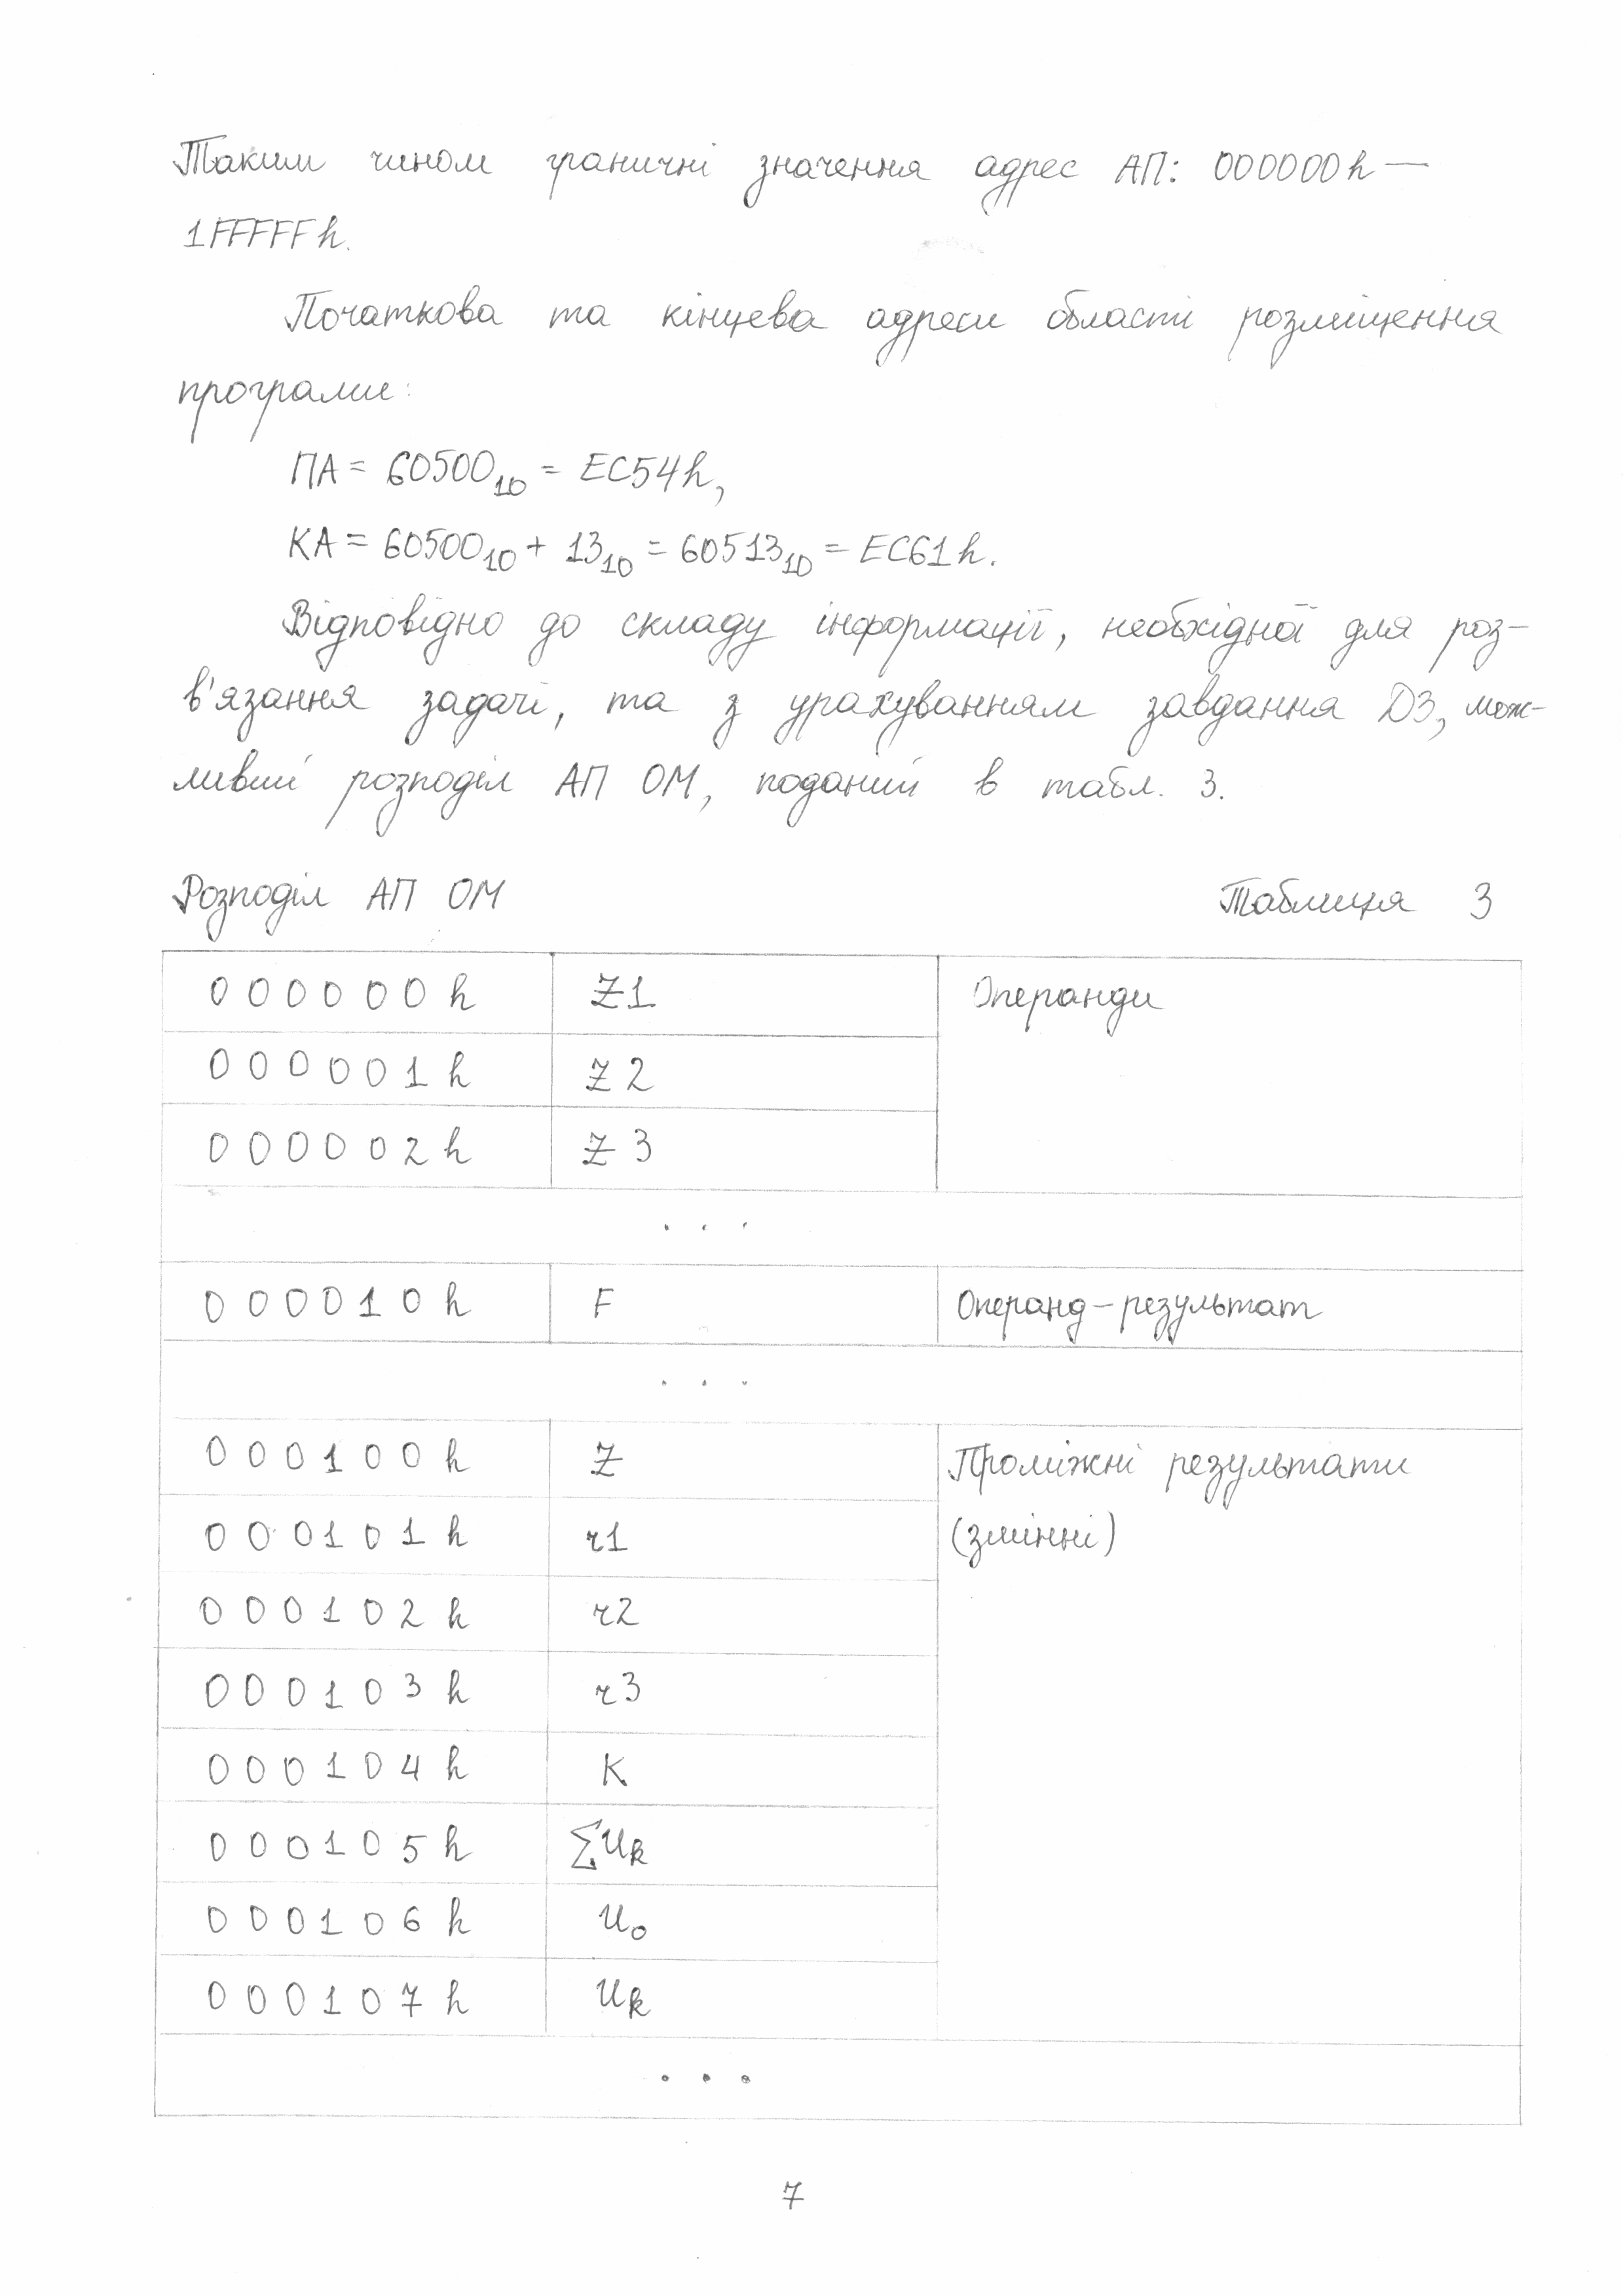 Таким чином граничні значення адрес АП: 000000h —
1FFFFFh.
Початкова та кінцева адреси області розміщення
програми:
ПА = 60500₁₀ = EC54h,
КА = 60500₁₀ + 13₁₀ = 60513₁₀ = EC61h.
Відповідно до складу інформації, необхідної для роз-
в'язання задачі, та з урахуванням завдання ДЗ, мож-
ливий розподіл АП ОМ, поданий в табл. 3.
Розподіл АП ОМ Таблиця 3
000000h Z1 Операнди
000001h Z2
000002h Z3
...
000010h F Операнд-результат
...
000100h Z Проміжні результати
000101h r1 (змінні)
000102h r2
000103h r3
000104h K
000105h ΣUk
000106h U₀
000107h Uk
...
7